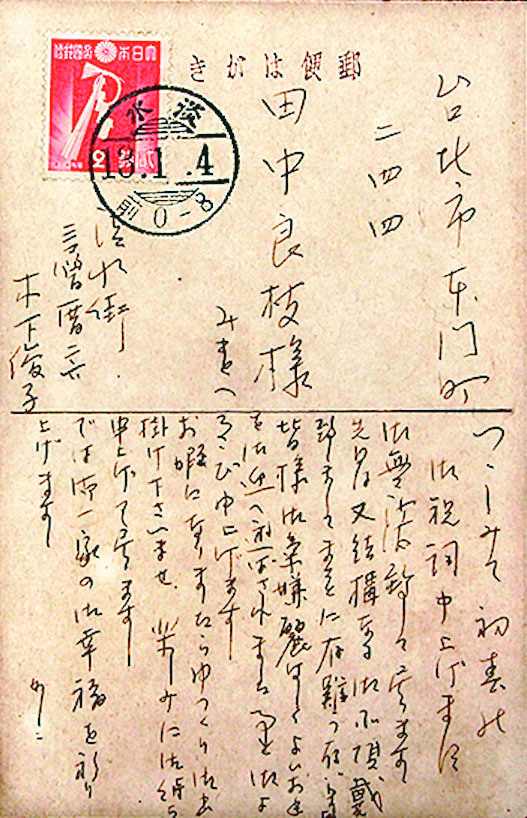 郵便はがき
大日本帝國郵便
2
淡水
13.1.4
前0-8
台北市東門町
二四四
田中良枝様
みもとへ
淡水街
木下俊子
つゝしみて初春の
御祝詞申上げます
御無沙汰致して居ります
先日は又結構なる御品頂戴
致しましてまことに有難う
皆様御機嫌麗はしくよいお年
を御迎へ
ろこび申上げます
お暇になりましたらゆつくり御出
掛け下さいませ 楽しみに御待ち
申上げて居ります
では御一家の御幸福を祈り
上げます